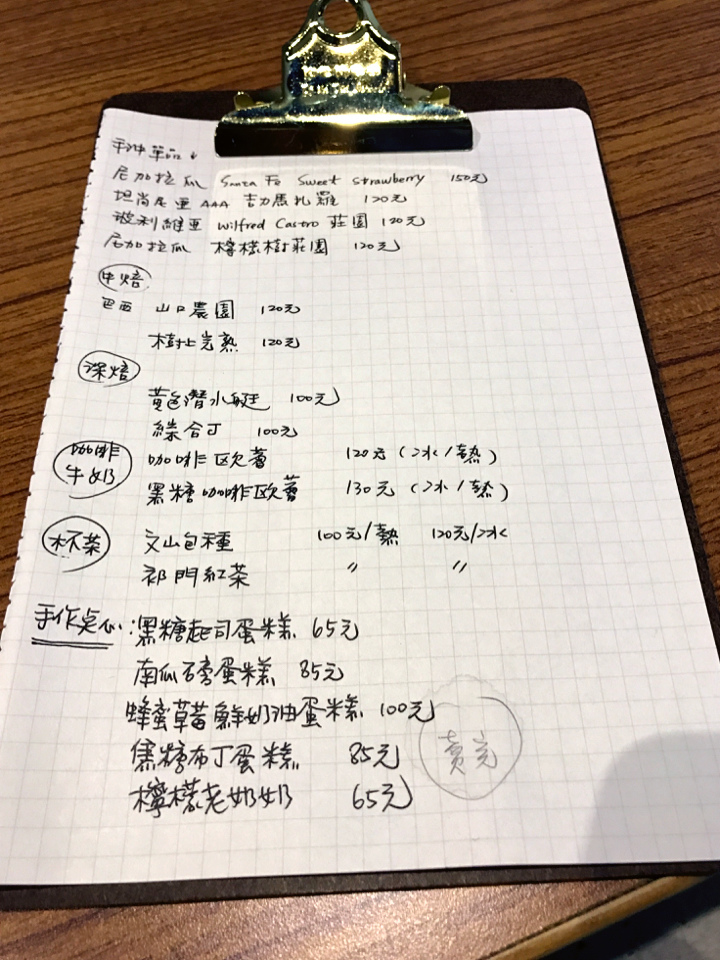 手沖單品↓
尼加拉瓜 Santa Fe Sweet Strawberry 150元
坦尚尼亞 AAA 吉力馬扎羅 120元
玻利維亞 Wilfred Castro 莊園 120元
尼加拉瓜 檸檬樹莊園 120元
中焙
巴西 山口農園 120元
樹上完熟 120元
深焙
黃色潛水艇 100元
綜合丁 100元
咖啡牛奶
咖啡歐蕾 120元 (冰/熱)
黑糖咖啡歐蕾 130元 (冰/熱)
杯茶
文山包種 100元/熱 120元/冰
祁門紅茶 〃 〃
手作点心:黑糖起司蛋糕 65元
南瓜磅蛋糕 85元
蜂蜜草莓鮮奶油蛋糕 100元
焦糖布丁蛋糕 85元
賣完
檸檬老奶奶 65元